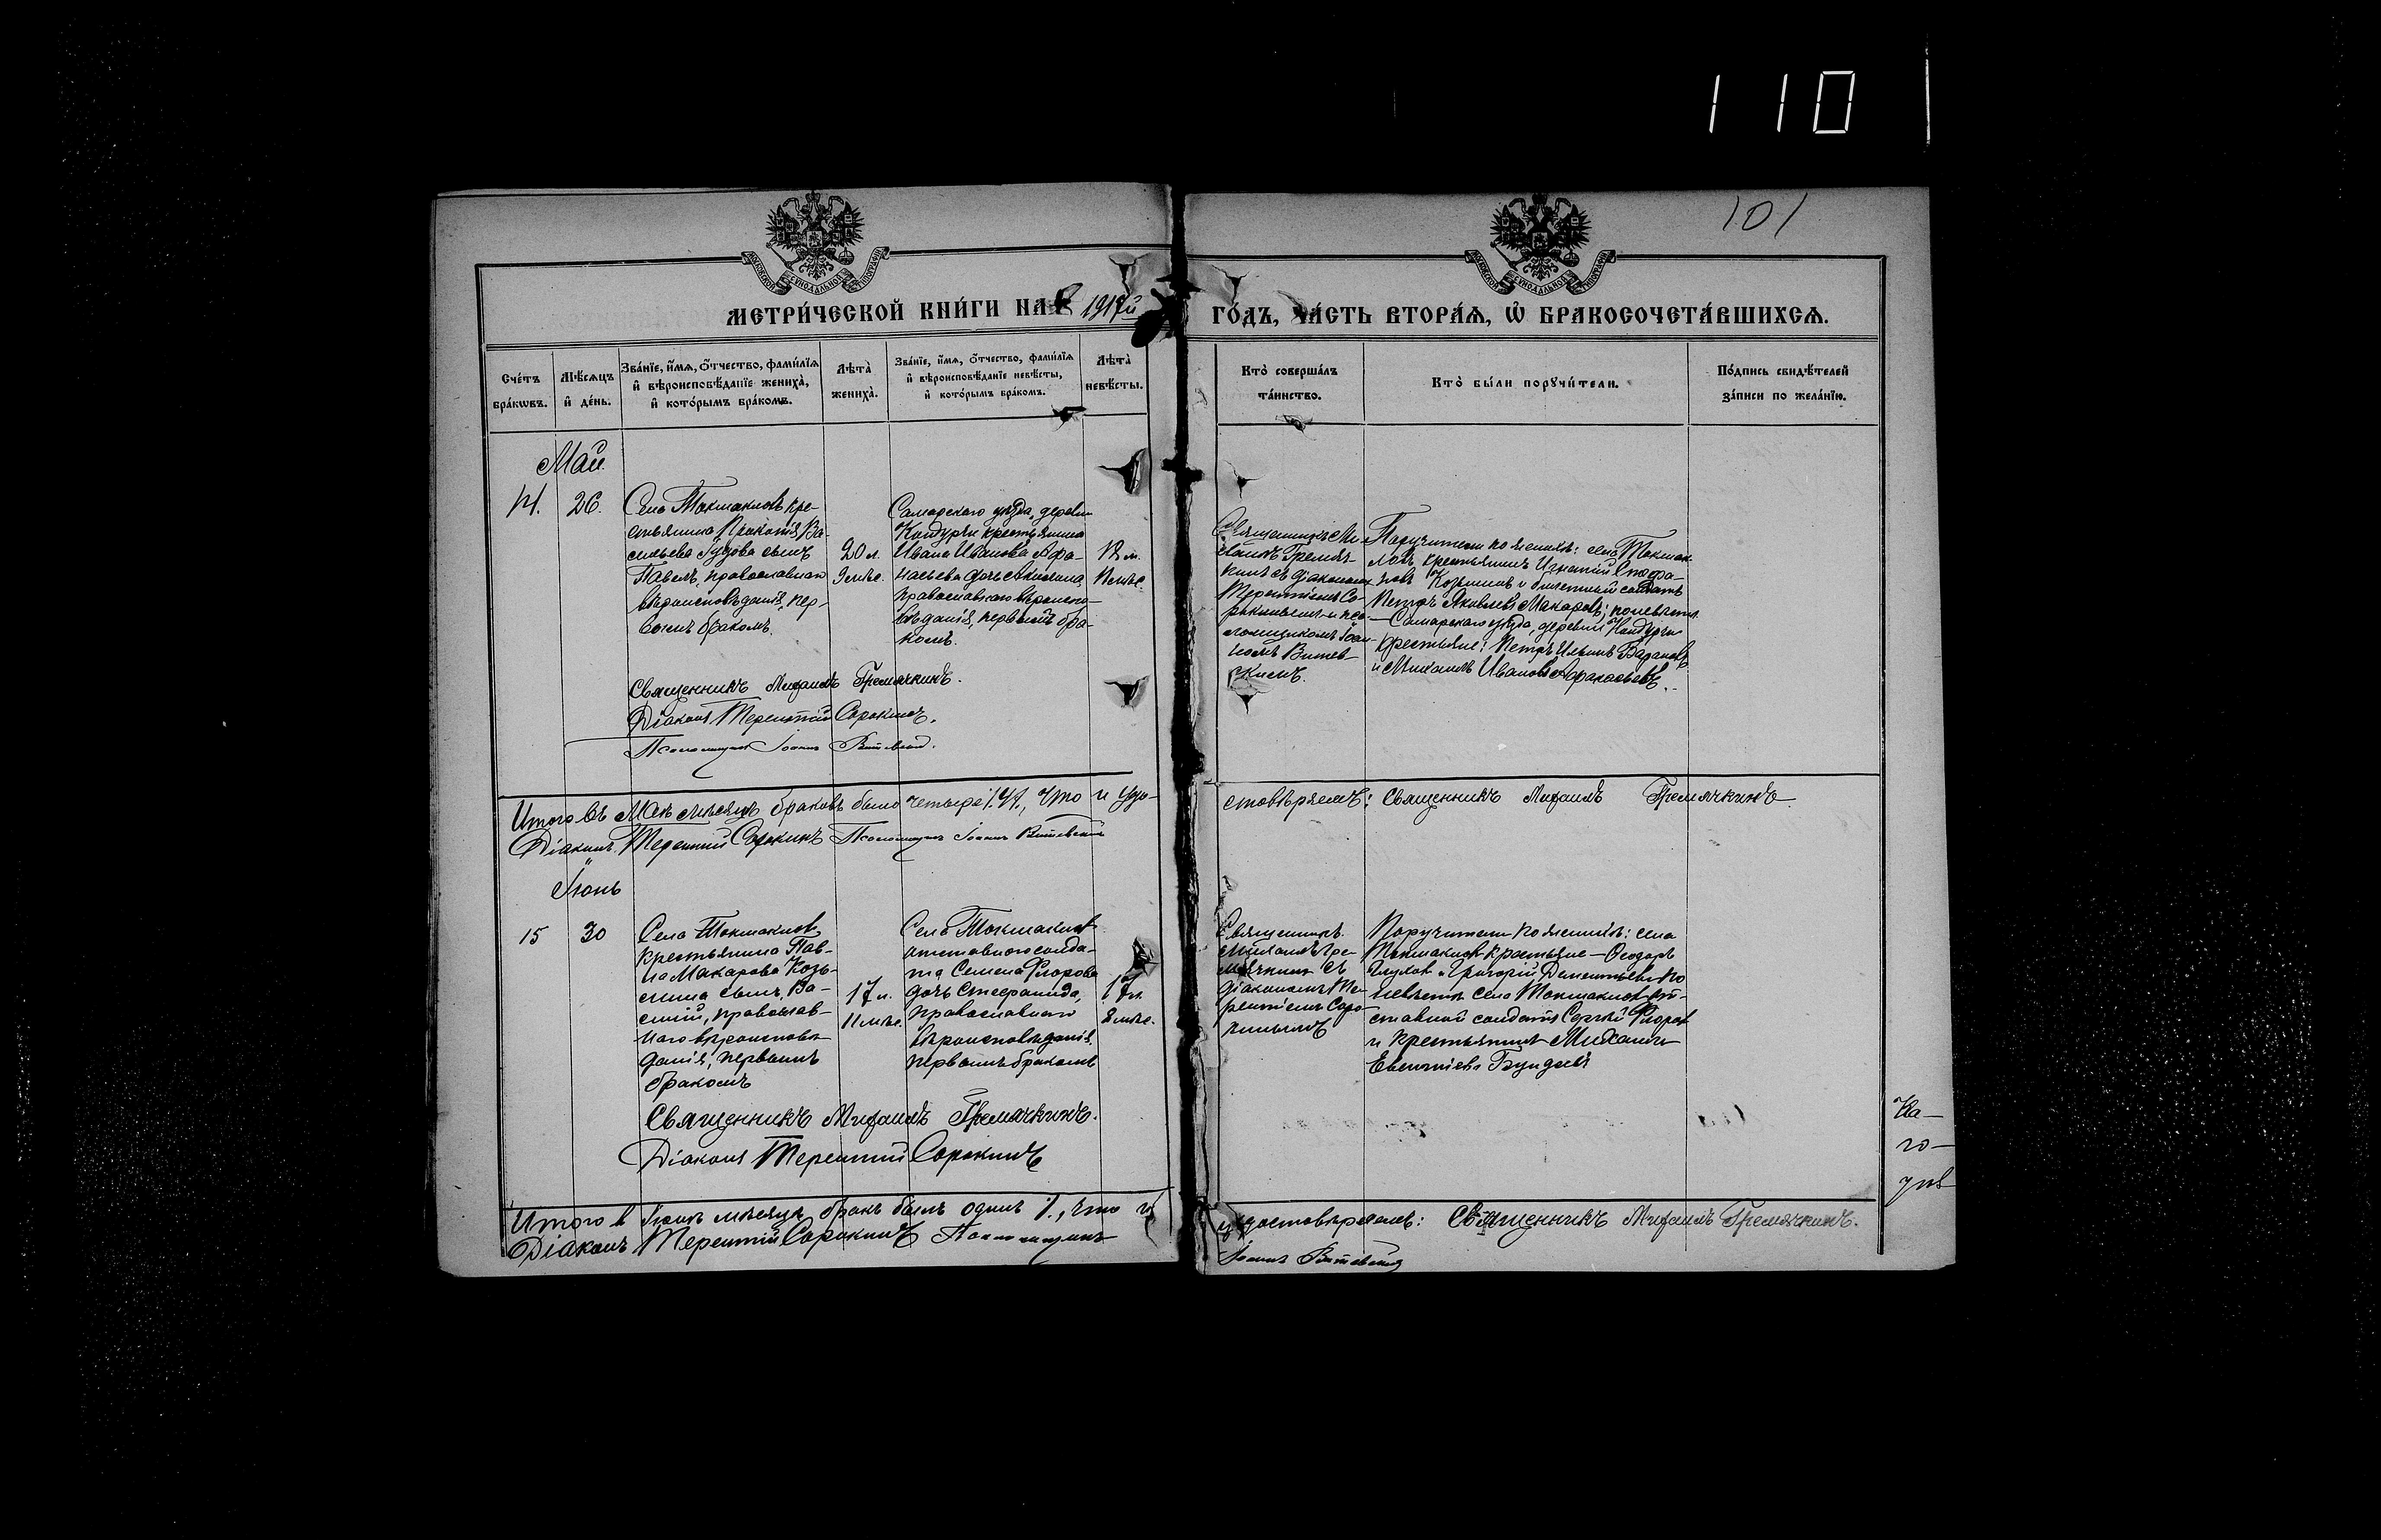 110
101
МЕТРИ́ЧЕСКОЙ КНИ́ГИ НА 1917й ГО́ДЪ, ЧА́СТЬ ВТОРА́Я, Ѡ БРАКОСОЧЕТА́ВШИХСЯ.
Сче́тъ бра́кωвъ.
Мѣ́сяцъ и҆ де́нь.
Зва́нїе, и҆́мя, ѻ҆́тчество, фами́лїя
и҆ вѣроисповѣ́данїе жениха̀,
и҆ кото́рымъ бра́комъ.
Лѣта̀ жениха̀.
Зва́нїе, и҆́мя, ѻ҆́тчество, фами́лїя
и҆ вѣроисповѣ́данїе невѣ́сты,
и҆ кото́рымъ бра́комъ.
Лѣта̀ невѣ́сты.
Кто̀ соверша́лъ та́инство.
Кто̀ бы́ли порꙋчи́тели.
По́дпись свидѣ́телей за́писи по жела́нїю.
Май
14.
26.
Села Токмаклов кре-
стьянина Прокопія Ва-
сильева Гудова сынъ
Павелъ, православнаго
вѣроисповѣданія, пер-
вымъ бракомъ.
20 л.
9 мѣс.
Самарскаго уѣзда, деревни
Кондурчи крестьянина
Ивана Иванова Афа-
насьева дочь
православнаго вѣроиспо-
вѣданія, первымъ бра-
комъ.
Священникъ Ми-
хаилъ Гремяч-
кинъ съ діакономъ
Терентіемъ Со-
рокинымъ и пса-
ломщикомъ Іоан-
номъ Витев-
скимъ.
Поручители по женихѣ: села Токмак-
лов крестьянинъ Игнатій Стефа-
новъ Козьминъ и билетный солдатъ
Петръ Яковлевъ Макаровъ; по невѣстѣ
— Самарскаго уѣзда, деревни Кондурчи
крестьяне: Петръ Ильинъ
и Михаилъ Ивановъ Афанасьевъ.
Священникъ Михаилъ Гремячкинъ.
Діаконъ Терентій Сорокинъ.
Псаломщикъ Іоаннъ Витевскій.
Итого въ Маѣ мѣсяцѣ браковъ было четыре /4/, что и удо-
стовѣряемъ: Священникъ Михаилъ Гремячкинъ.
Діаконъ Терентій Сорокинъ Псаломщикъ Іоаннъ Витевскій
Іюнь
15
30
Села Токмаклов
крестьянина Пав-
ла Макарова Козь-
мина сынъ, Ва-
силій, православ-
наго вѣроисповѣ-
данія, первымъ
бракомъ
17 л.
11 мѣс.
Села Токмаклов
отставного солда-
та Семена Флорова
дочь Стефанида,
православнаго
вѣроисповѣданія,
первымъ бракомъ
17 л.
8 мѣс.
Священникъ
Михаилъ Гре-
мячкинъ съ
діакономъ Те-
рентіемъ Соро-
кинымъ
Поручители по женихѣ: села
Токмаклов крестьяне — Ѳеодоръ
и Григорій Дементьевъ по
невѣстѣ села Токмаклов от-
ставной солдатъ Сергѣй Флоров
и крестьянинъ Михаилъ
Священникъ Михаилъ Гремячкинъ.
Діаконъ Терентій Сорокинъ
Итого в Іюнѣ мѣсяцѣ бракъ былъ одинъ 1., что и
удостовѣряемъ: Священникъ Михаилъ Гремячкинъ.
Діаконъ Терентій Сорокинъ Псаломщикъ
Іоаннъ Витевскій